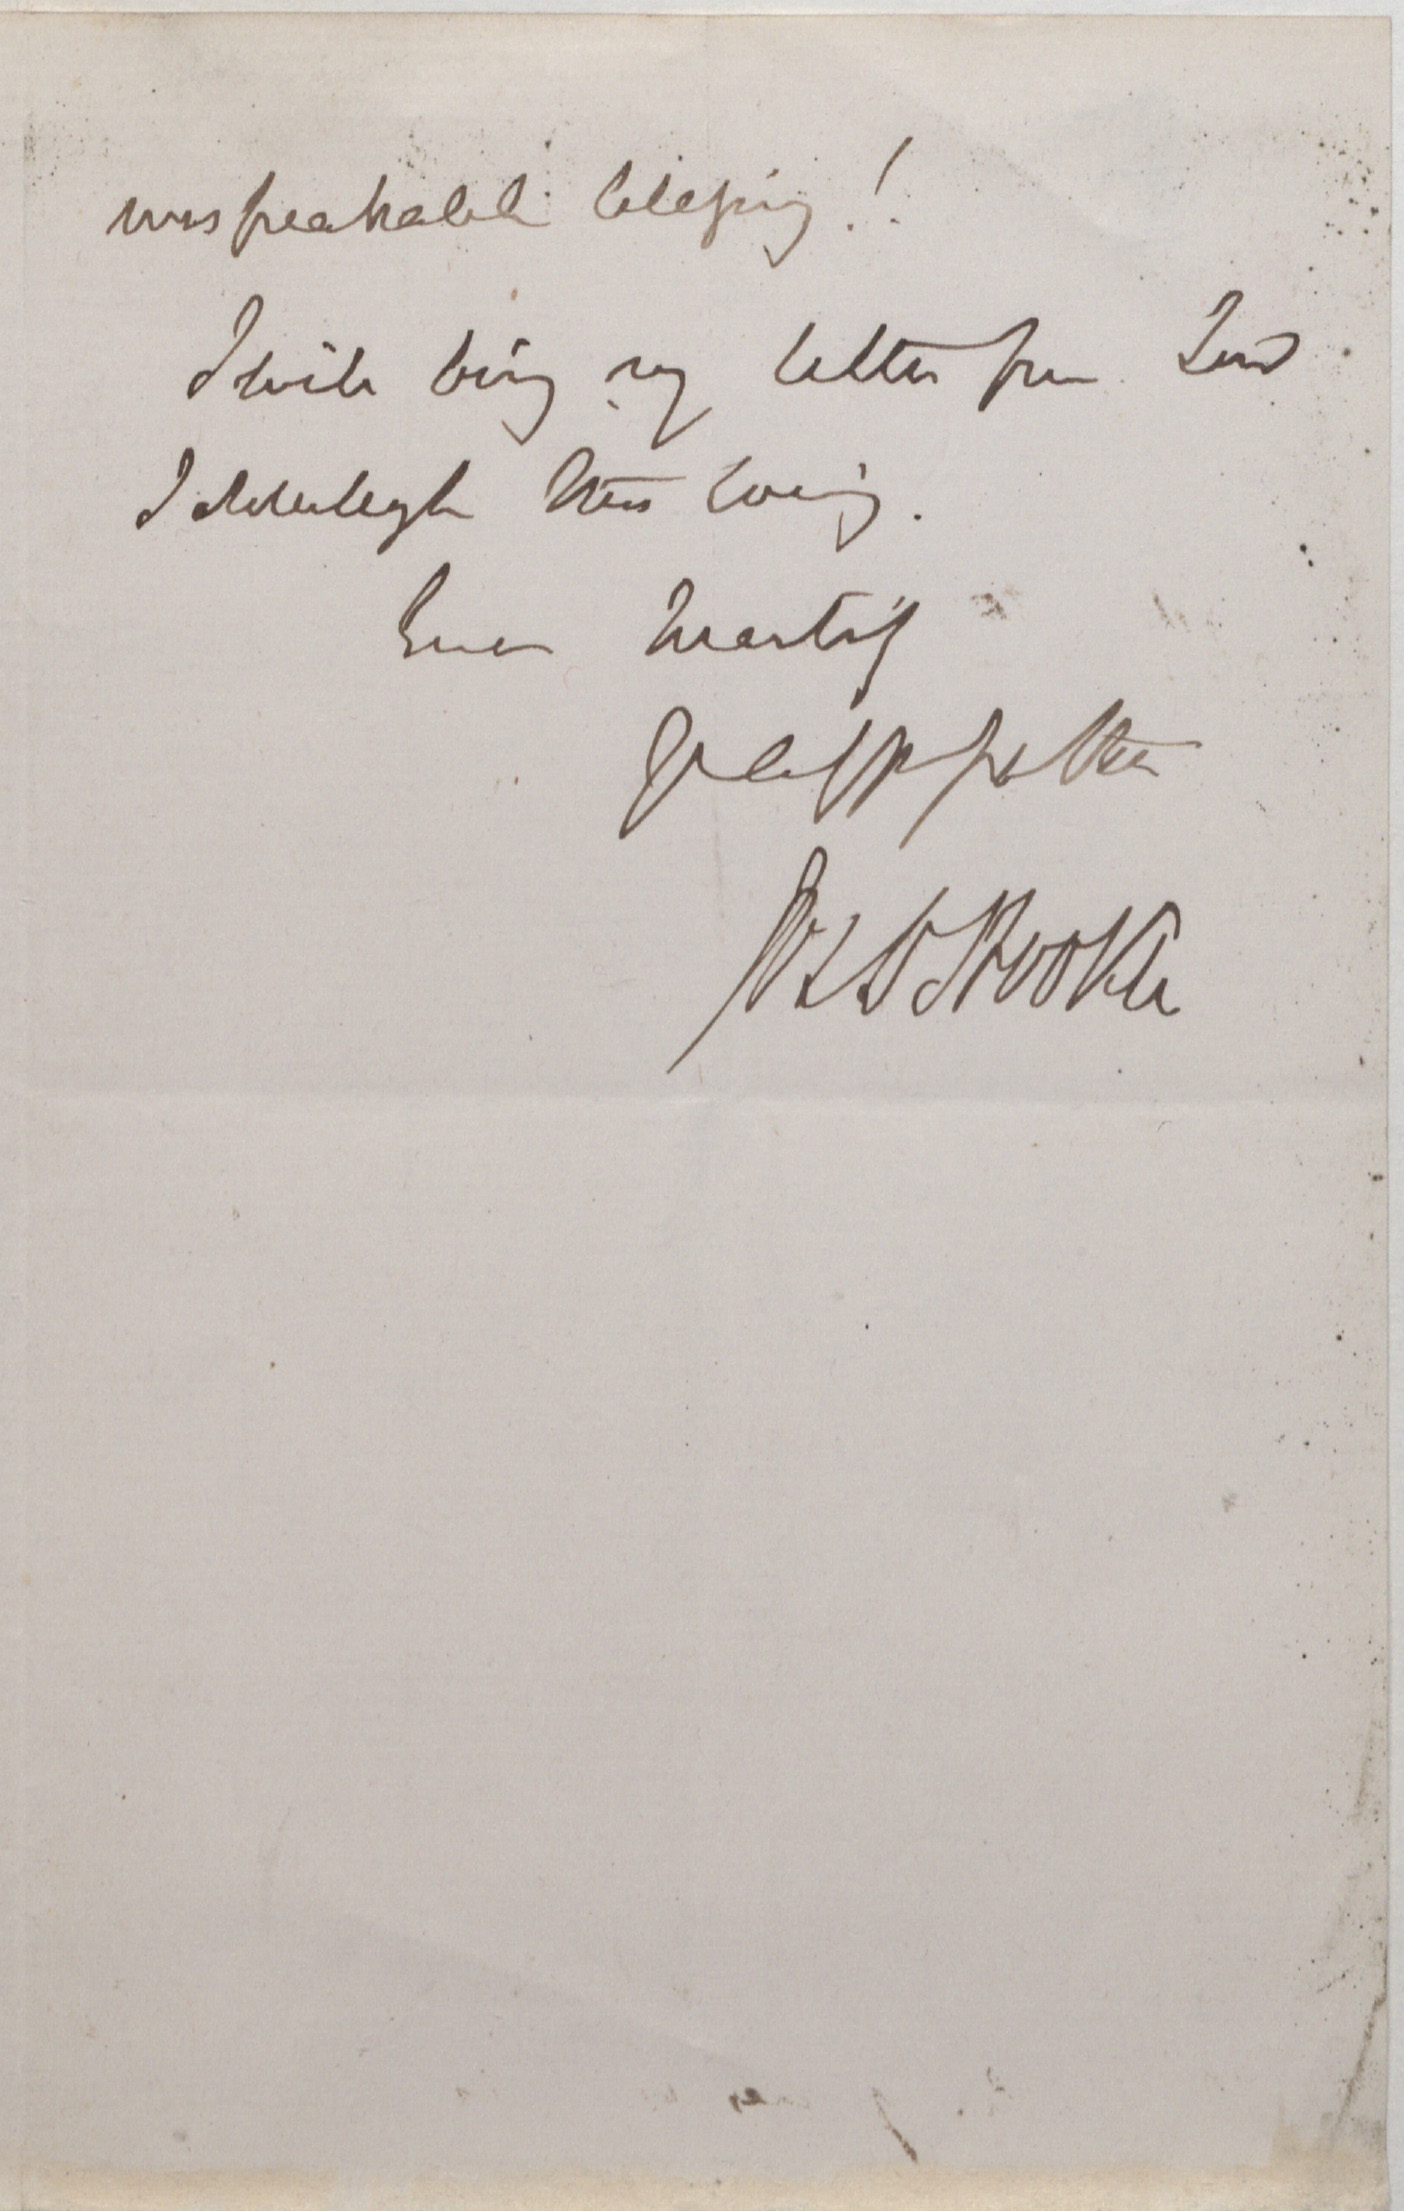 unspeakable blessing!
I will bring my letter from Lord
Iddesleigh this evening.
Ever heartily
Jos. D. Hooker